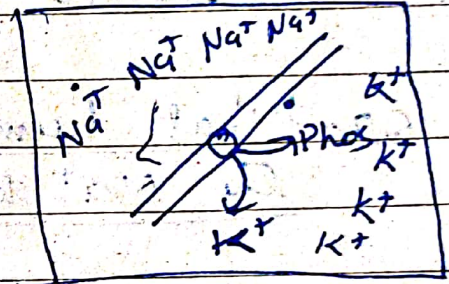 Na⁺ Na⁺ Na⁺ Na⁺
K⁺
Phos
K⁺
K⁺
K⁺ K⁺